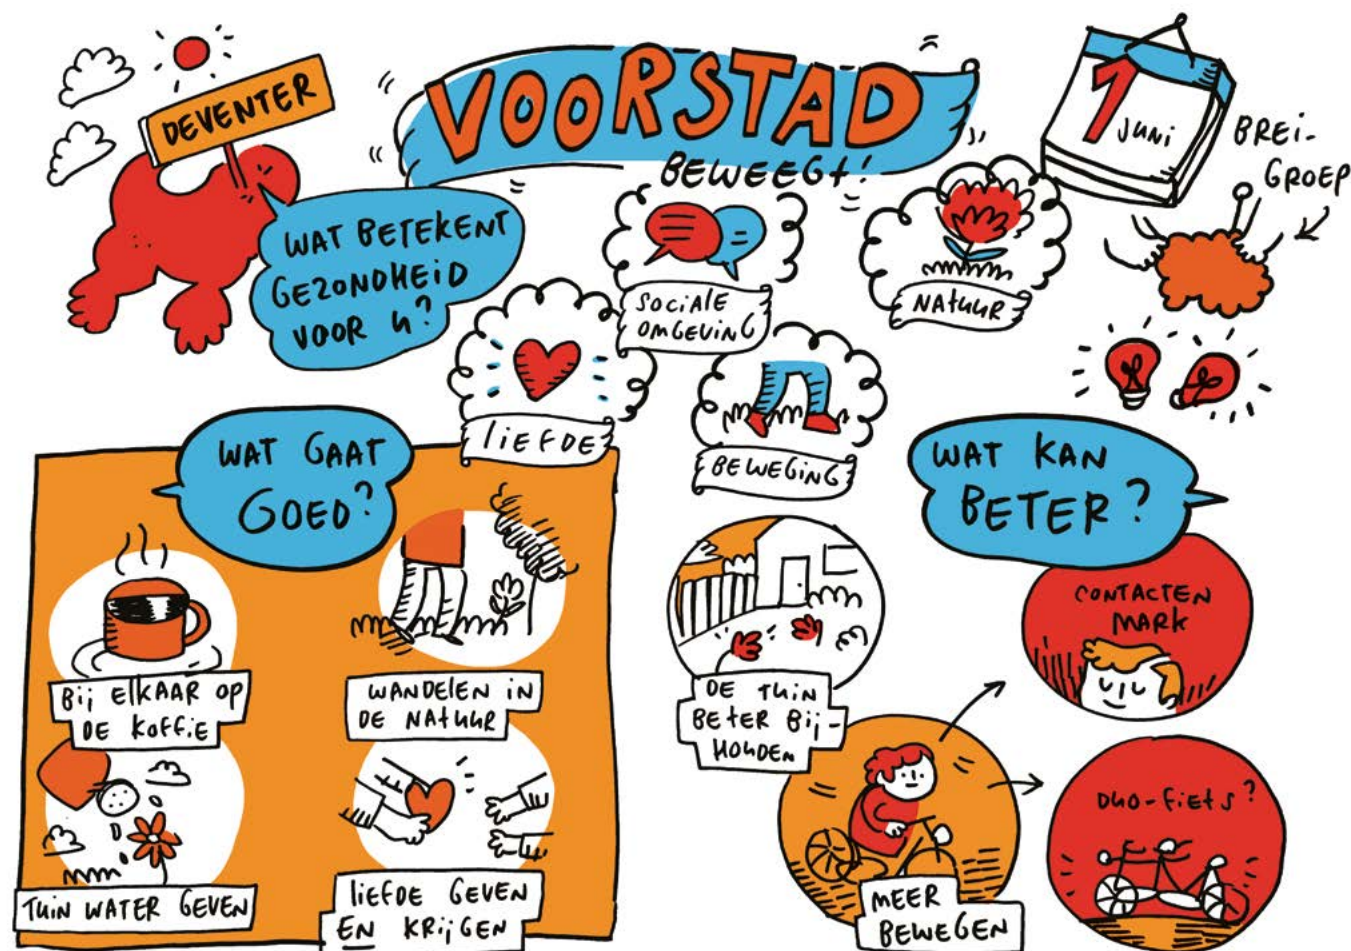 DEVENTER
VOORSTAD
BEWEEGt!
1
JUNI
BREI-
GROEP
WAT BETEKENT
GEZONDHEID
VOOR U?
SOCIALE
OMGEVING
NATUUR
LIEFDE
BEWEGING
WAT GAAT
GOED?
Bij ElKAAR op
DE KoffiE
WANDELEN iN
DE NAtUUR
TUiN WATER GEVEN
liEFDE GEVEN
EN KRijGEN
WAT KAN
BETER?
DE TUiN
BEtER Bij-
HOUDEN
MEER
BEWEGEN
CONTACTEN
MARK
DUO-FiEtS?